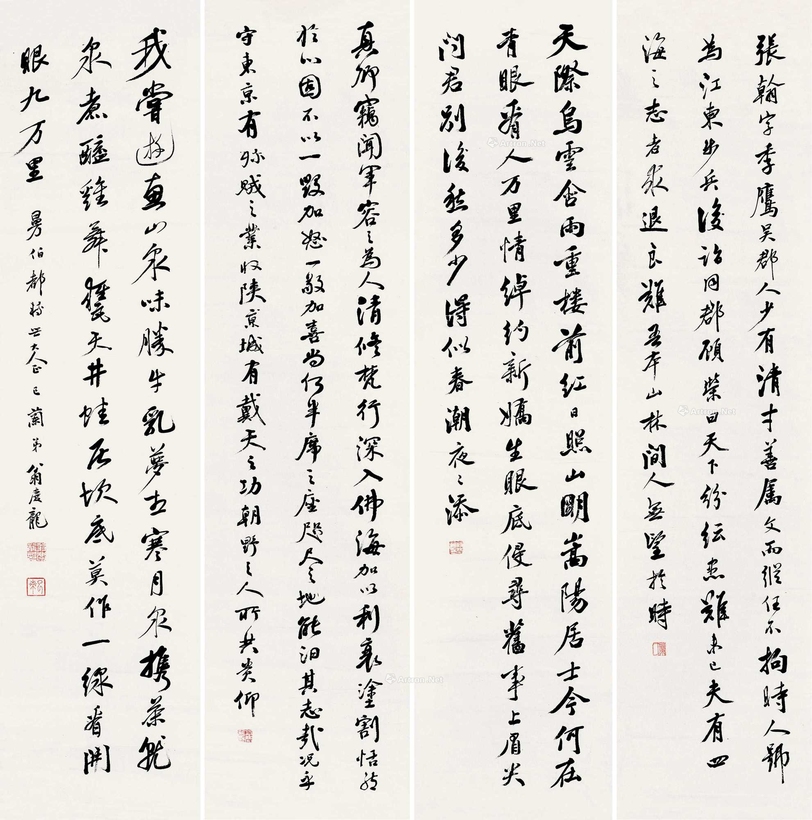 張翰字季鷹吴郡人少有清才善属文而縱任不拘時人號
為江東步兵後謂同郡顧榮曰天下紛紜禍難未已夫有四
海之志者求退良難吾本山林間人無望於時
天際烏雲含雨重樓前紅日照山明嵩陽居士今何在
青眼看人万里情綽約新嬌生眼底侵尋舊事上眉尖
問君別後愁多少得似春潮夜〻添
真卿竊聞軍容之為人清修梵行深入佛海加以利衰塗割恬然
於心固不以一毁加怒一敬加喜尚何半席之座咫尺之地能汨其志哉况乎
守東京有殄賊之業收陝京城有戴天之功朝野之人所共贵仰
我嘗游惠山泉味勝牛乳夢古寒月泉攜茶就
泉煮醯雞舞甕天井蛙居坎底莫作一線看開
眼九万里 伯都 大人正 己 蘭弟翁慶龍